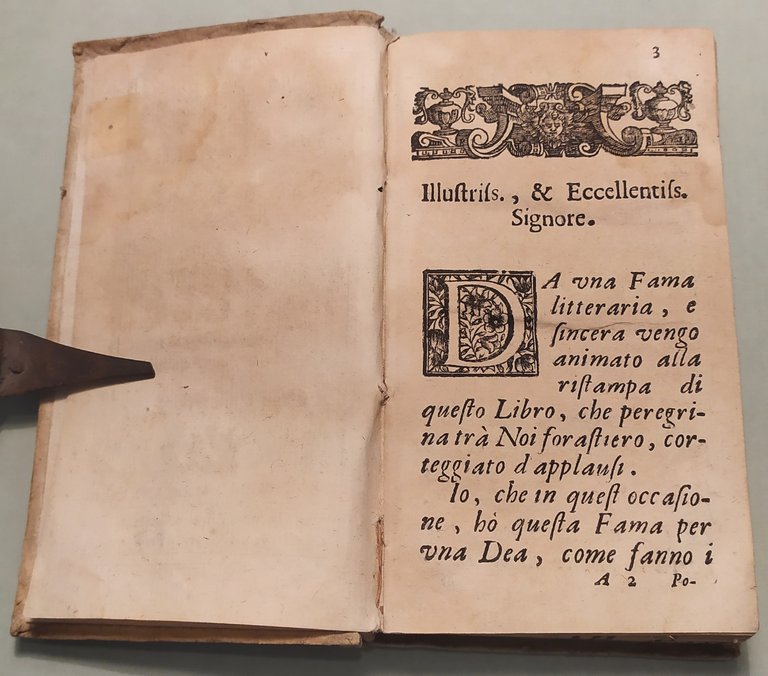 3
Illuſtriſs., & Eccellentiſs.
Signore.
DA vna Fama
litteraria, e
ſincera vengo
animato alla
riſtampa di
queſto Libro, che peregri-
na trà Noi foraſtiero, cor-
teggiato d'applauſi.
Io, che in queſt occaſio-
ne, hò queſta Fama per
vna Dea, come fanno i
A 2 Po-